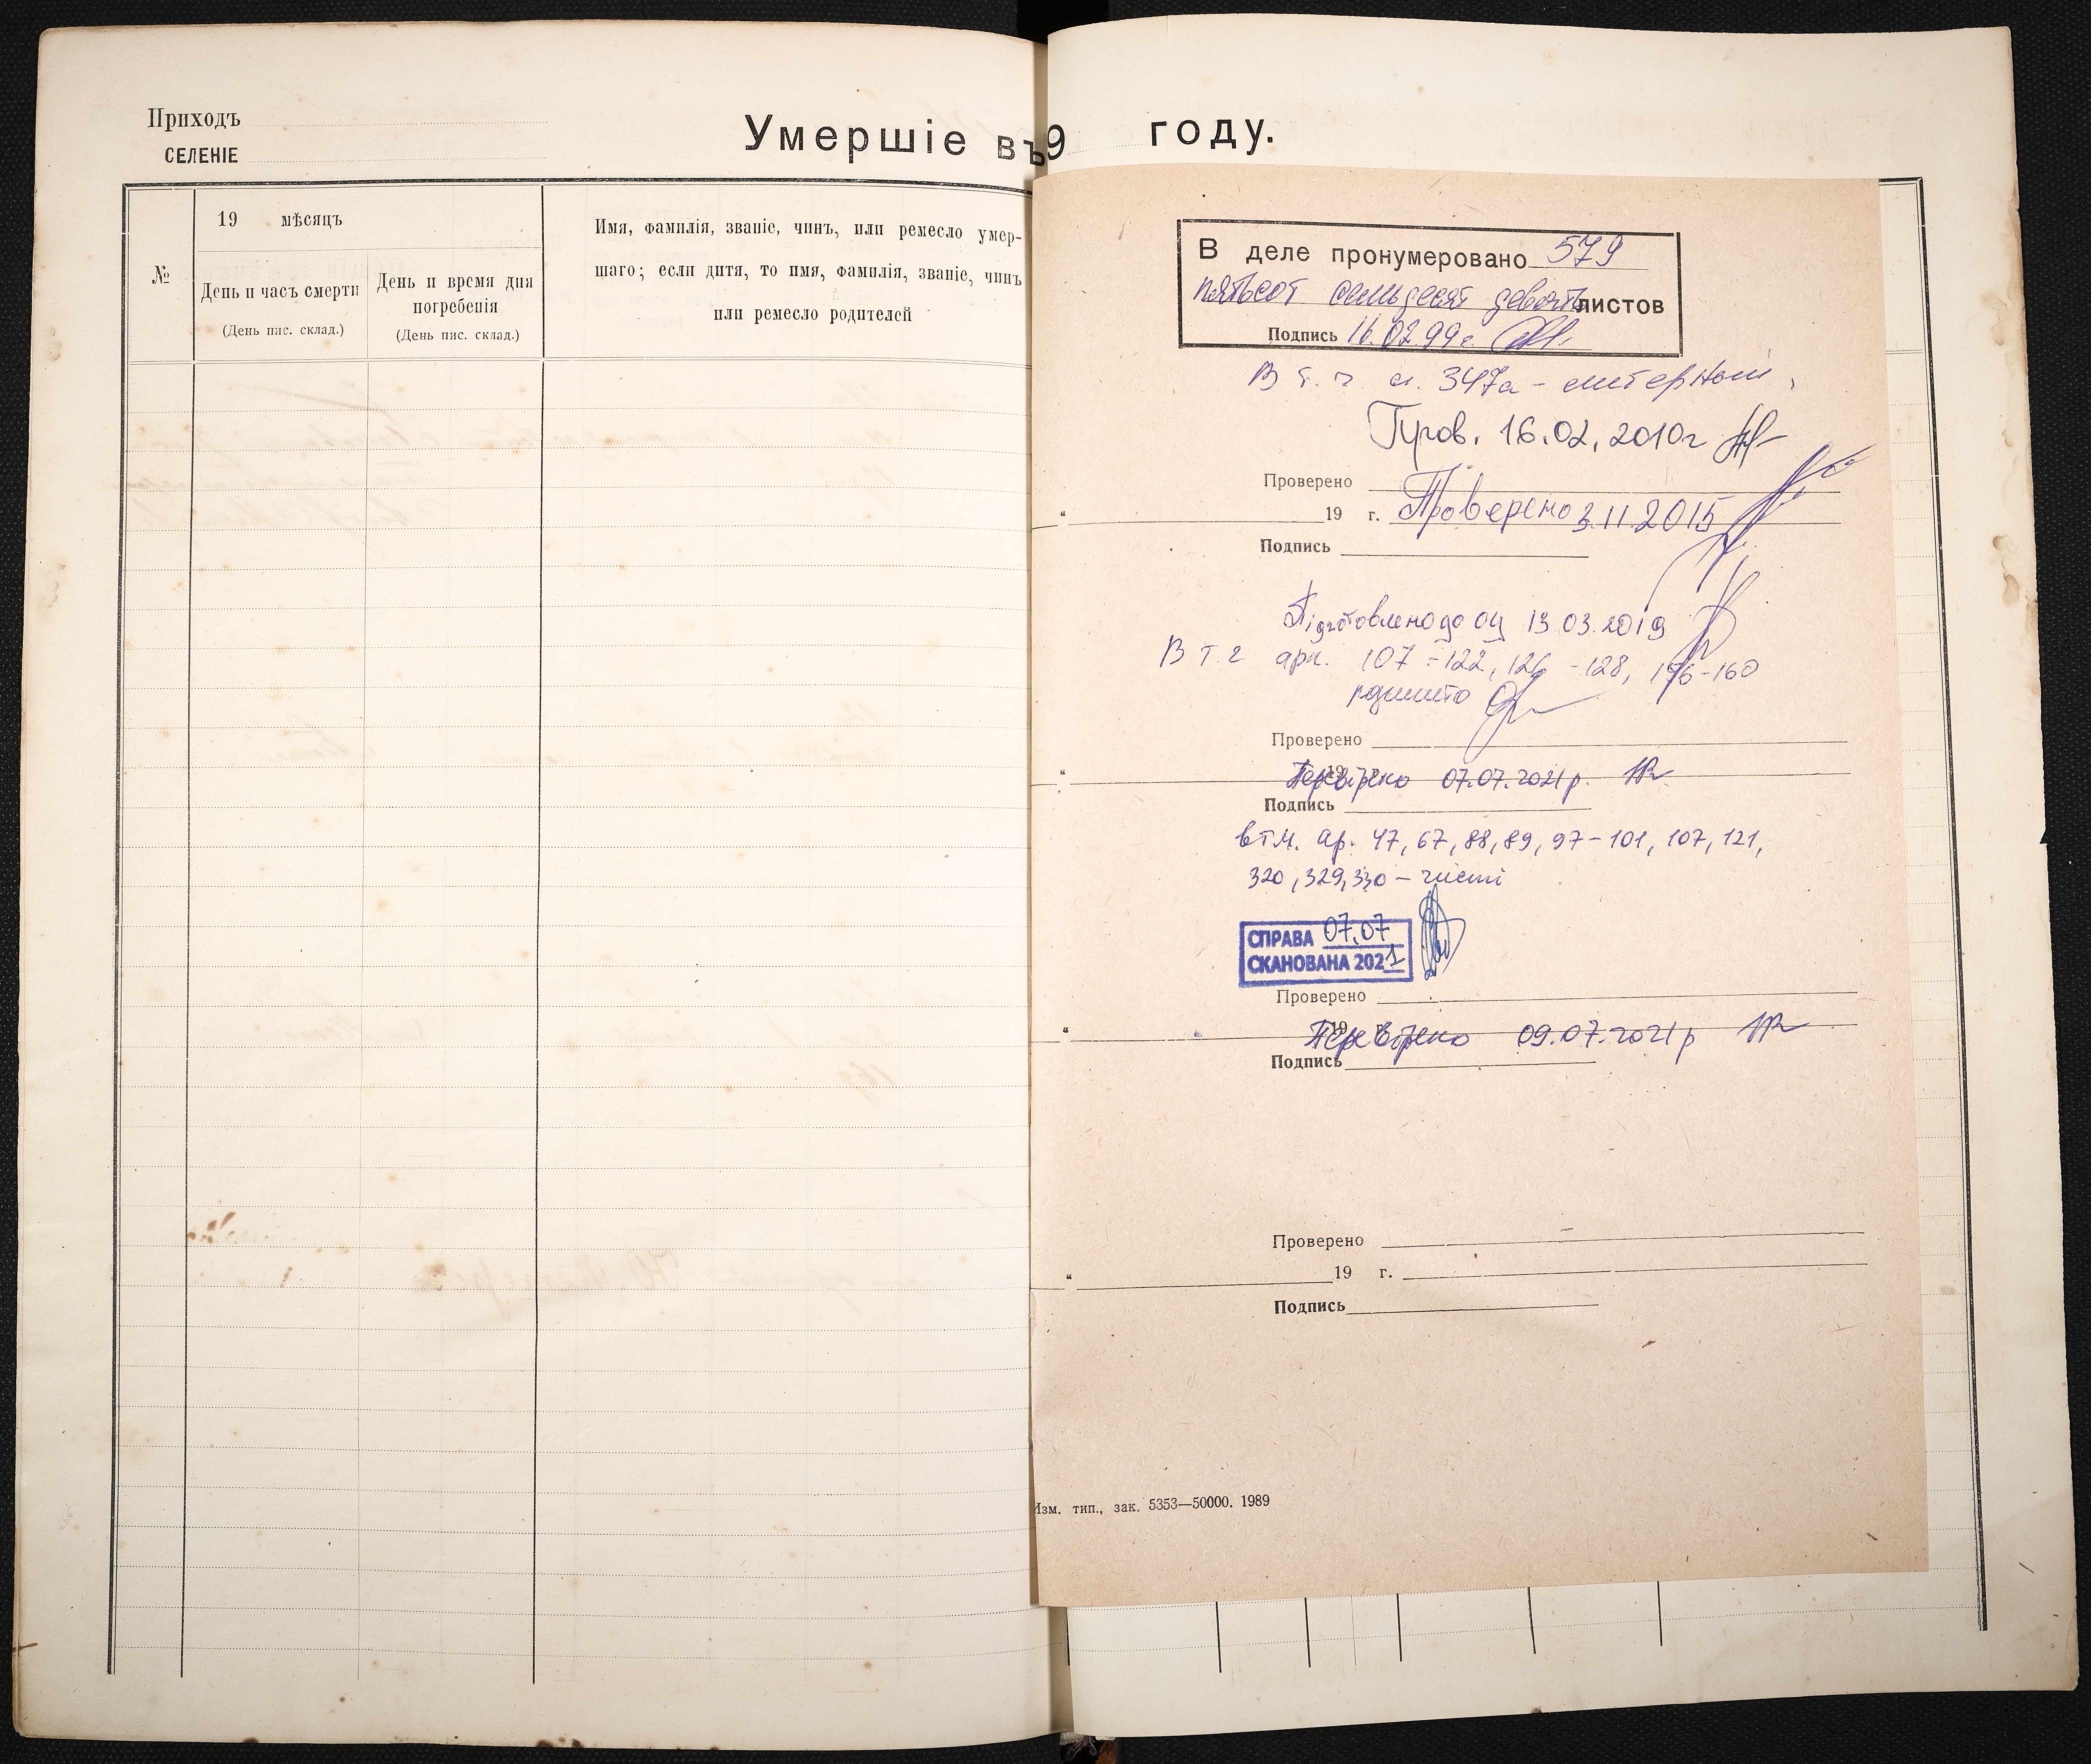 Приходъ
СЕЛЕНІЕ
Умершіе въ 9 году.
№
19 мѣсяцъ
День и часъ смерти
(День пис. склад.)
День и время дня
погребенія
(День пис. склад.)
Имя, фамилія, званіе, чинъ, или ремесло умер-
шаго; если дитя, то имя, фамилія, званіе, чинъ
или ремесло родителей
В деле пронумеровано 579
пятьсот семьдесят девять листов
Подпись 16.02.99 г.
В т. ч л. 347а - литерный,
Пров. 16.02.2010г
Проверено
“ 19 г. Проверено 3.11.2015
Подпись
Підготовлено до оц 13.03.2019
В т. г арк. 107-122, 126-128, 156-160
Проверено
“ 19 Перевірено 07.07.2021 р.
Подпись
в т.ч. ар. 47, 67, 88, 89, 97-101, 107, 121,
320, 329, 330 - чисті
СПРАВА 07.07
СКАНОВАНА 2021
Проверено
“ 19 Перевірено 09.07.2021 р
Подпись
Проверено
“ 19 г.
Подпись
Изм. тип., зак. 5353—50000. 1989